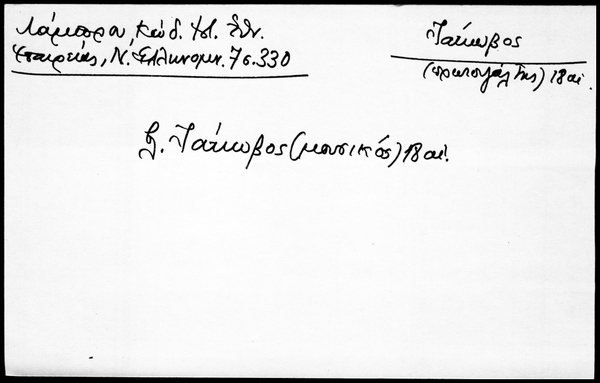 Λάμπρου, Κώδ. Ἱστ. Ἐθν.
Ἑταιρείας, Ν. Ἑλληνομν. 7 σ. 330
Ἰάκωβος
(πρωτοψάλτης) 18 αἰ.
β. Ἰάκωβος (μουσικός) 18 αἰ.